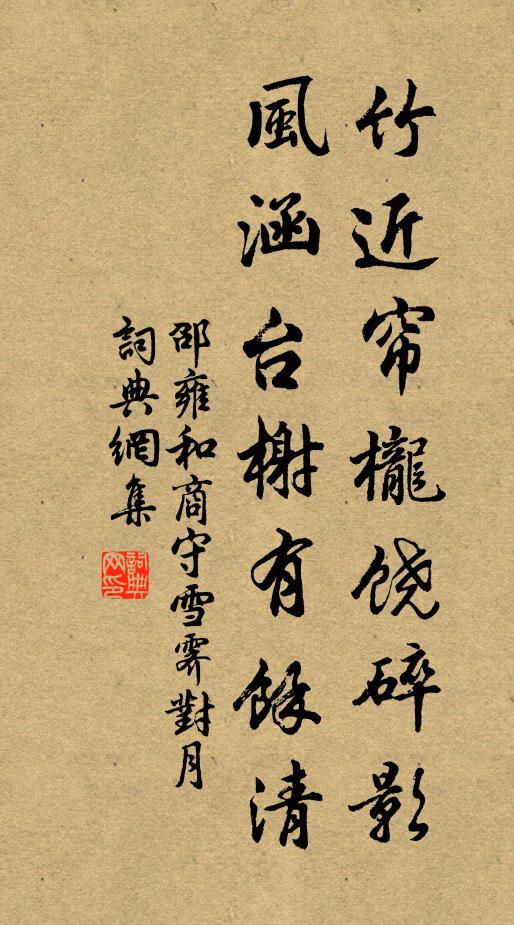 竹近帘櫳饶碎影
風涵台榭有餘清
邵雍和商守雪霽對月
詞典網集
詞典网印